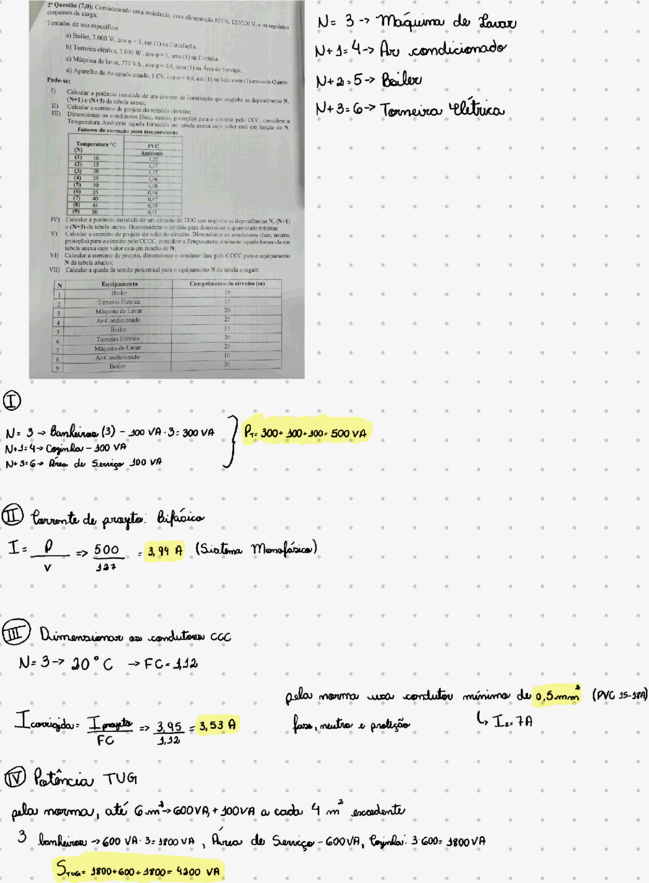 2ª Questão (7,0): Considerando uma residência, com alimentação 127/220 V, e os seguintes
esquemas de carga:
Tomadas de uso específico:
a) Boiler, 3.000 W, cos φ = 1, um (1) na Circulação.
b) Torneira elétrica, cos φ = 1, uma (1) na Cozinha.
c) Máquina de lavar, 770 VA, cos φ = uma (1) na Área de Serviço,
d) Aparelho de Ar-condicionado, 1 CV, cos φ = um (1) na Sala e um (1) em cada Quarto
Pede-se:
I) Calcular a potência instalada de um circuito de iluminação que engloba as dependências N,
(N+1) e (N+3) da tabela anexa;
II) Calcular a corrente de projeto do referido circuito;
III) Dimensionar os condutores (fase, neutro, proteção) para o circuito pelo CCC, considere a
Temperatura Ambiente aquela fornecida em tabela anexa cujo valor está em função de N.
Fatores de correção para temperatura
Temperatura °C
(N)
PVC
Ambiente
(1) 10
(2) 15 1,17
(3) 20 1,12
(4) 25 1,06
(5) 30 1,00
(6) 35 0,94
(7) 40 0,87
(8) 45 0,79
(9) 50 0,71
IV) Calcular a potência instalada de um circuito de TUG que engloba as dependências N, (N+1)
e (N+3) da tabela anexa. Desconsiderar o critério para determinar a quantidade mínima;
V) Calcular a corrente de projeto do referido circuito. Dimensionar os condutores (fase, neutro,
proteção) para o circuito pelo CCCC, considere a Temperatura Ambiente aquela fornecida em
tabela anexa cujo valor está em função de N.
VI) Calcular a corrente de projeto, dimensionar o condutor fase pelo CCCC para o equipamento
N da tabela abaixo;
VII) Calcular a queda de tensão percentual para o equipamento N da tabela a seguir
N Equipamento Comprimento do circuito (m)
1 Boiler
2 Torneira Elétrica 15
3 Máquina de Lavar 20
4 Ar-Condicionado 25
5 Boiler 15
6 Torneira Elétrica 20
7 Máquina de Lavar 25
8 Ar-Condicionado 10
9 Boiler 20
N = 3 -> Máquina de Lavar
N+1=4 -> Ar condicionado
N+2=5 -> Boiler
N+3=6 -> Torneira elétrica
I
N = 3 -> Banheiros (3) - 100 VA · 3 = 300 VA
N+1=4 -> Cozinha - 100 VA
N+3=6 -> Área de Serviço 100 VA
PT= 300+100+100= 500 VA
II Corrente de projeto: Bifásico
I = P/V => 500/127 = 3,94 A (Sistema Monofásico)
III Dimensionar os condutores CCC
N=3 -> 20°C -> FC = 1,12
pela norma usa condutor mínimo de 0,5mm² (PVC 15-18A)
Icorrigida= Iprojeto/FC => 3,95/1,12 = 3,53 A
fase, neutro e proteção ↳ Iz=7A
IV Potência TUG
pela norma, até 6m² -> 600VA, + 100VA a cada 4 m² excedente
3 banheiros -> 600 VA · 3= 1800 VA , Área de Serviço - 600VA, Cozinha: 3·600= 1800VA
STUG= 1800+600+1800= 4200 VA